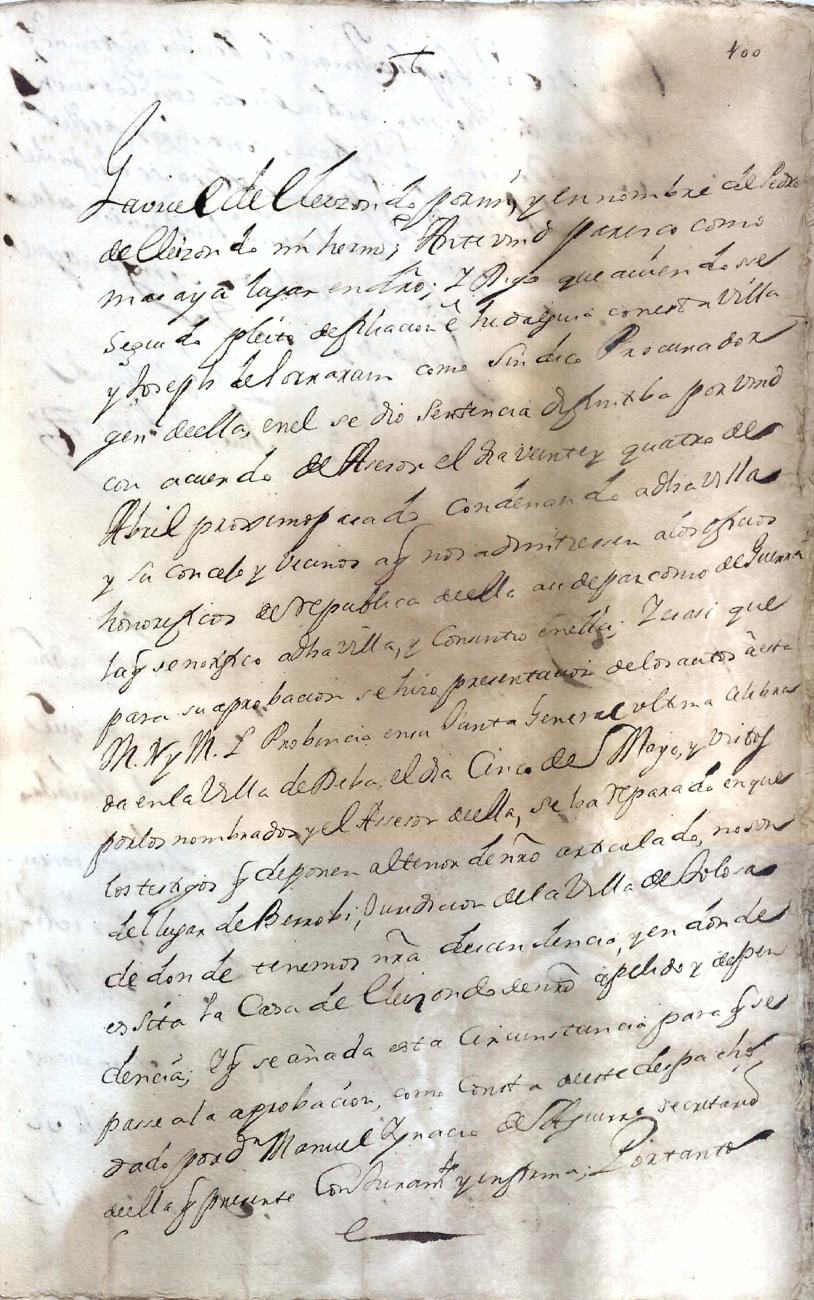 400
Gavriel de Eleizondo por mi, y en nombre de Pedro
de Eleizondo mi herm̃o; Ante vmd parezco como
mas aya lugar en dr̃o; Y Digo que aviendose
seguido pleito de filiacion è hidalguia con esta Villa
y Joseph de como Sindico Procurador
gen de ella, en el se dio Sentencia difinitiba por vmd
con acuerdo de Asesor el dia veinte y quatro de
Abril proximo pasado condenando a dha Villa
y su concejo y vecinos a q̃ nos admitiessen a los oficios
honorificos de republica de ella asi de paz como de Guerra
la q̃ se notifico a dha villa, y Consintio en ella; Y es asi que
para su aprobacion se hizo presentacion de los autos â esta
M. N. y M. L. Probincia en su Junta General ultima celebra
da en la Villa de Deba, el dia Cinco de Mayo, y vistos
por los nombrados y el Assesor de ella, se ha reparado en que
los testigos q̃ deponen al tenor de nr̃o articulado, no son
del lugar de Berrobi, Juridicion de la Villa de Tolosa
de donde tenemos nr̃a descendencia, y en donde
es sita la Casa de Eleizondo de nr̃o apelido y depen
dencia; Y q̃ se añada esta Circunstancia para q̃ se
passe a la aprobacion, como Consta de este despacho
dado por Dn Manuel Ygnacio de Aguirre secretario
de ella q̃ presente Con Juramto y en forma; Por tanto